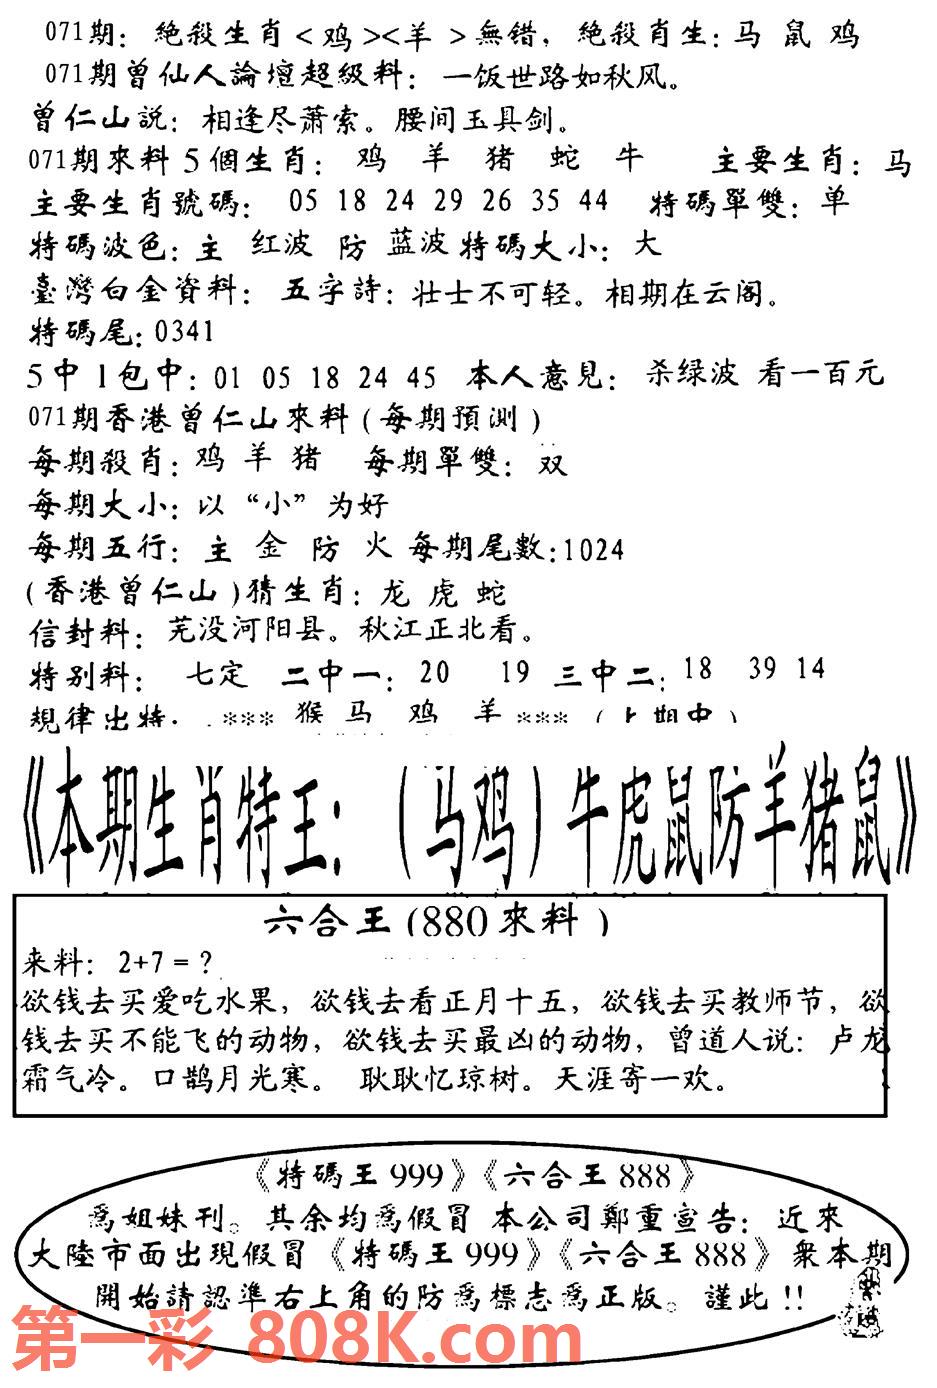 071期：絶殺生肖<鸡><羊>無错，絶殺肖生：马 鼠 鸡
071期曾仙人論壇超級料：一饭世路如秋风。
曾仁山説：相逢尽萧索。腰间玉具剑。
071期來料5個生肖：鸡 羊 猪 蛇 牛 主要生肖：马
主要生肖號碼：05 18 24 29 26 35 44 特碼單雙：单
特碼波色：主 红波 防 蓝波 特碼大小：大
臺灣白金資料：五字詩：壮士不可轻。相期在云阁。
特碼尾：0341
5中1包中：01 05 18 24 45 本人意見：杀绿波 看一百元
071期香港曾仁山來料(每期預測)
每期殺肖：鸡 羊 猪 每期單雙：双
每期大小：以“小”为好
每期五行：主 金 防 火 每期尾數：1024
(香港曾仁山)猜生肖：龙 虎 蛇
信封料：芜没河阳县。秋江正北看。
特别料：七定 二中一：20 19 三中二：18 39 14
規律出特： ***猴 马 鸡 羊***（上期中）
《本期生肖特王：（马鸡）牛虎鼠防羊猪鼠》
六合王(880來料)
来料：2+7=?
欲钱去买爱吃水果，欲钱去看正月十五，欲钱去买教师节，欲
钱去买不能飞的动物，欲钱去买最凶的动物，曾道人说：卢龙
霜气冷。口鹊月光寒。 耿耿忆琼树。天涯寄一欢。
《特碼王999》《六合王888》
爲姐妹刊。其余均爲假冒 本公司鄭重宣告：近來
大陸市面出現假冒《特碼王999》《六合王888》衆本期
開始請認準右上角的防爲標志爲正版。謹此!!
第一彩 808K.com